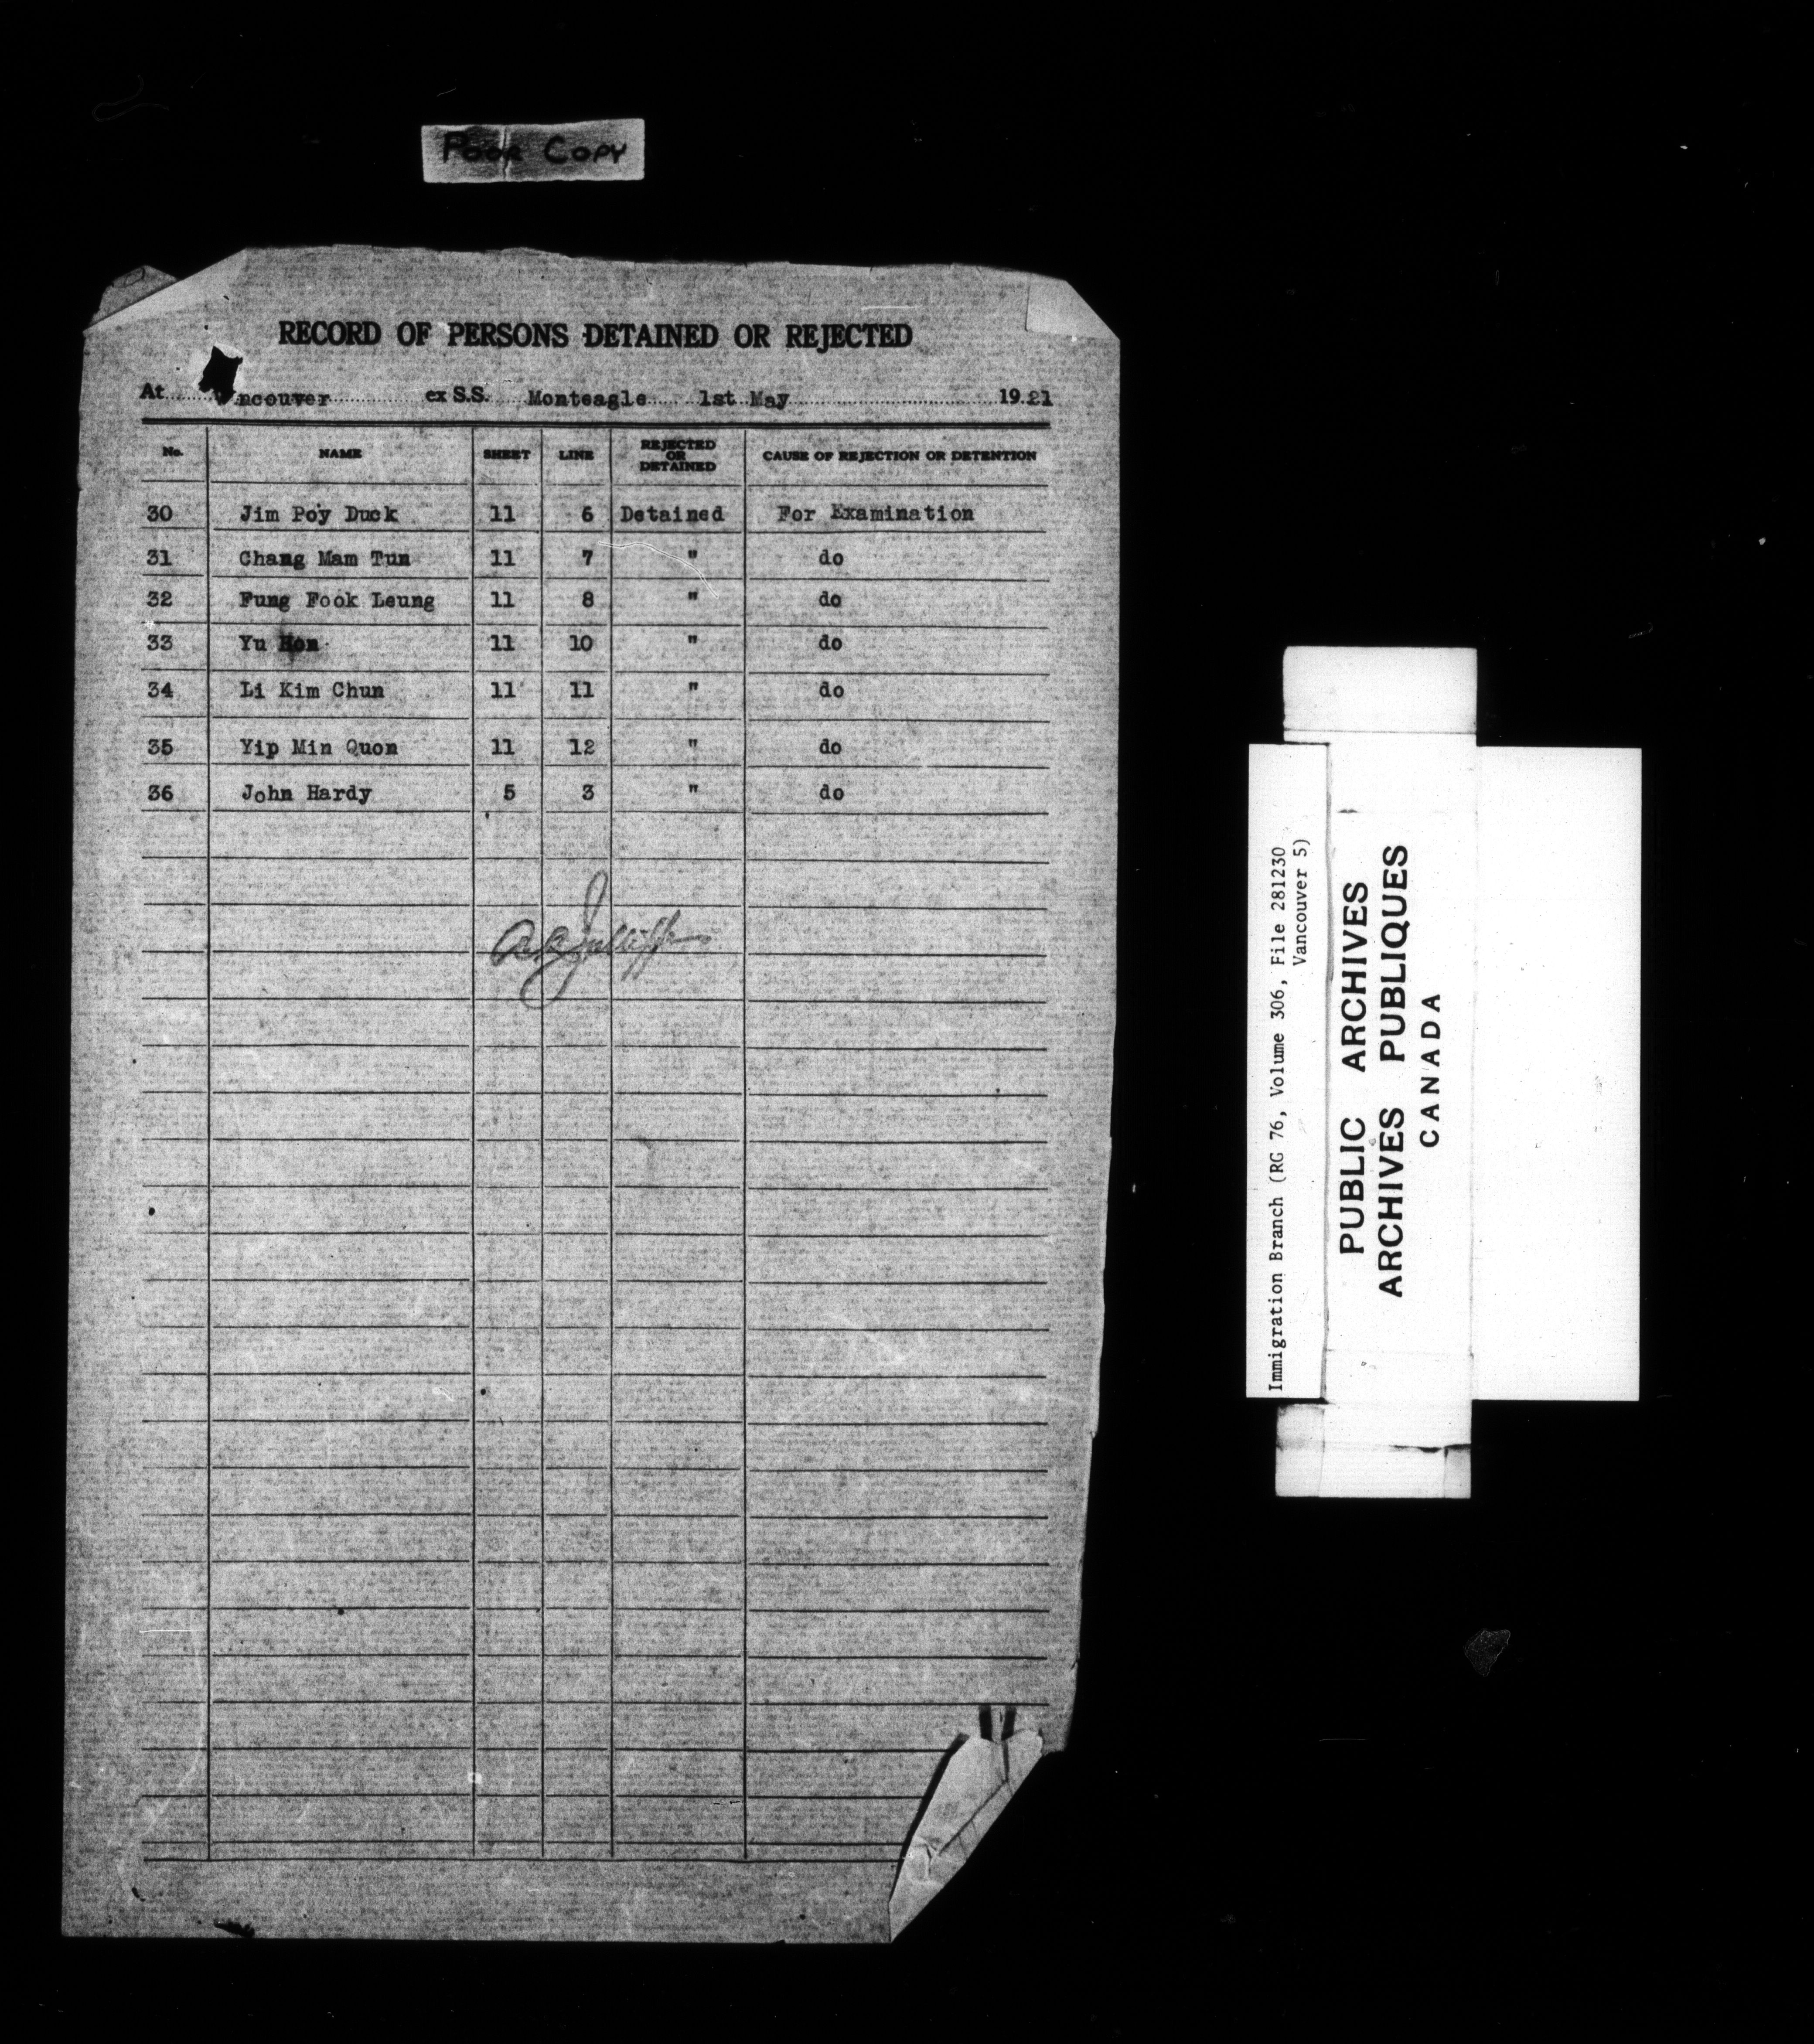 Poor Copy
RECORD OF PERSONS DETAINED OR REJECTED
At ncouver ex S.S. Monteagle 1st May 1921
No. NAME SHEET LINE REJECTED OR DETAINED CAUSE OF REJECTION OR DETENTION
30 Jim Poy Duck 11 6 Detained For Examination
31 Chang Mam Tun 11 7 " do
32 Fung Fook Leung 11 8 " do
33 Yu Hon 11 10 " do
34 Li Kim Chun 11 11 " do
35 Yip Min Quon 11 12 " do
36 John Hardy 5 3 " do
Immigration Branch (RG 76, Volume 306, File 281230
Vancouver 5)
PUBLIC ARCHIVES
ARCHIVES PUBLIQUES
CANADA